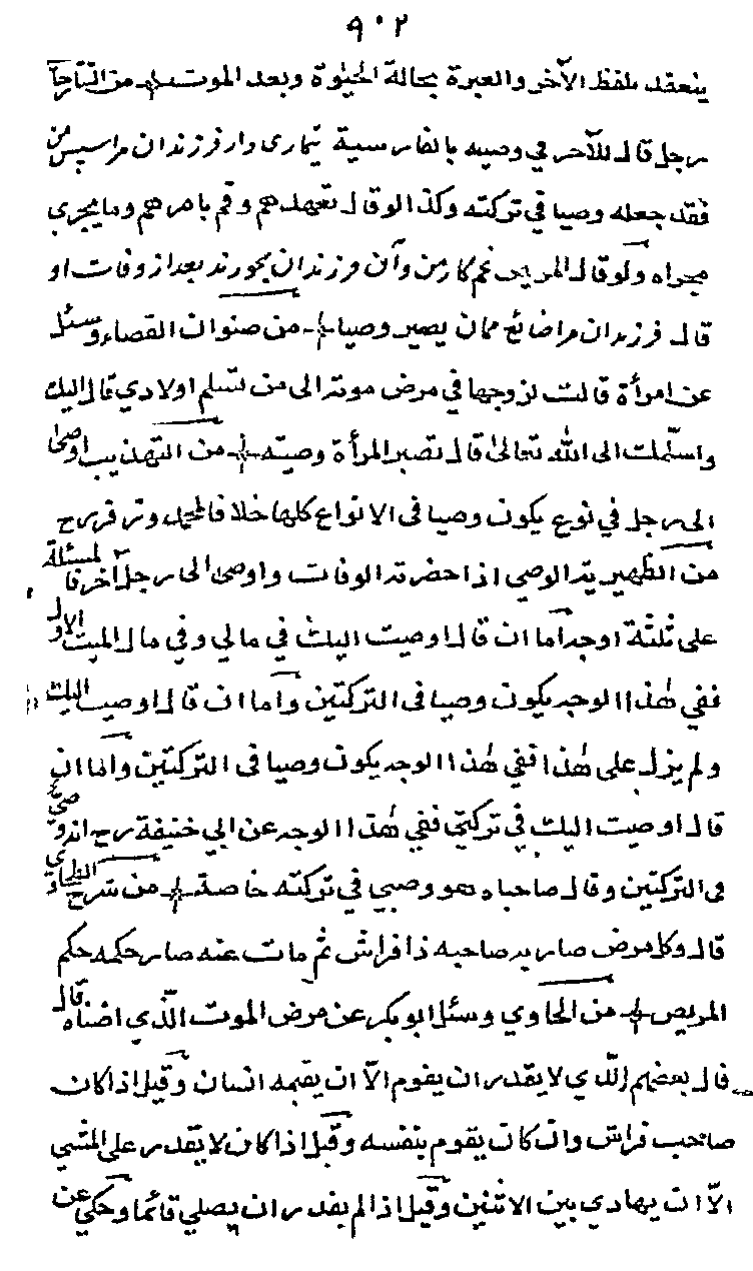 ٩٠٢
ينعقد بلفظ الآخر والعبرة بحالة الحيٰوة وبعد الموت من
رجل قال للآخر في وصيه بالفارسية تيماري دار فرزندان مرا سپس من
فقد جعله وصيا في تركته وكذا لو قال تعهدهم وقم بامرهم وما يجري
مجراه ولو قال المريض غم كار من وآن فرزندان بخوريد بعد از وفات او
قال فرزندان مرا ضائع ممان يصير وصيا من صنوان القضاء وسئل
عن امرأة قالت لزوجها في مرض موته الى من تسلم اولادي قال اليك
واسلمك الى الله تعالىٰ قال تصير المرأة وصيته من التهذيب اوصىٰ
الى رجل في نوع يكون وصيا في الانواع كلها خلافا لمحمد
من الظهيرية الوصي اذا حضرته الوفات واوصىٰ الى رجل آخر فالمسئلة
على ثلٰثة اوجه اما ان قال اوصيت اليك في مالي وفي مال الميت الاول
ففي هٰذا الوجه يكون وصيا في التركتين واما ان قال اوصيت اليك
ولم يزل على هٰذا ففي هٰذا الوجه يكون وصيا في التركتين واما ان
قال اوصيت اليك في تركتي ففي هٰذا الوجه عن ابي حنيفة رح انه وصيّ
في التركتين وقال صاحباه هو وصي في تركته خاصة من شرح الطحاوي
قال وكل مرض صار به صاحبه ذا فراش ثم مات عنه صار حكمه حكم
المريض من الحاوي وسئل ابو بكر عن مرض الموت الّذي اضناه قال
قال بعضهم الّذي لا يقدر ان يقوم الاّ ان يقيمه انسان وقيل اذا كان
صاحب فراش وان كان يقوم بنفسه وقيل اذا كان لا يقدر على المشي
الاّ ان يهادي بين الاثنين وقيل اذا لم يقدر ان يصلي قائما وحكي عن